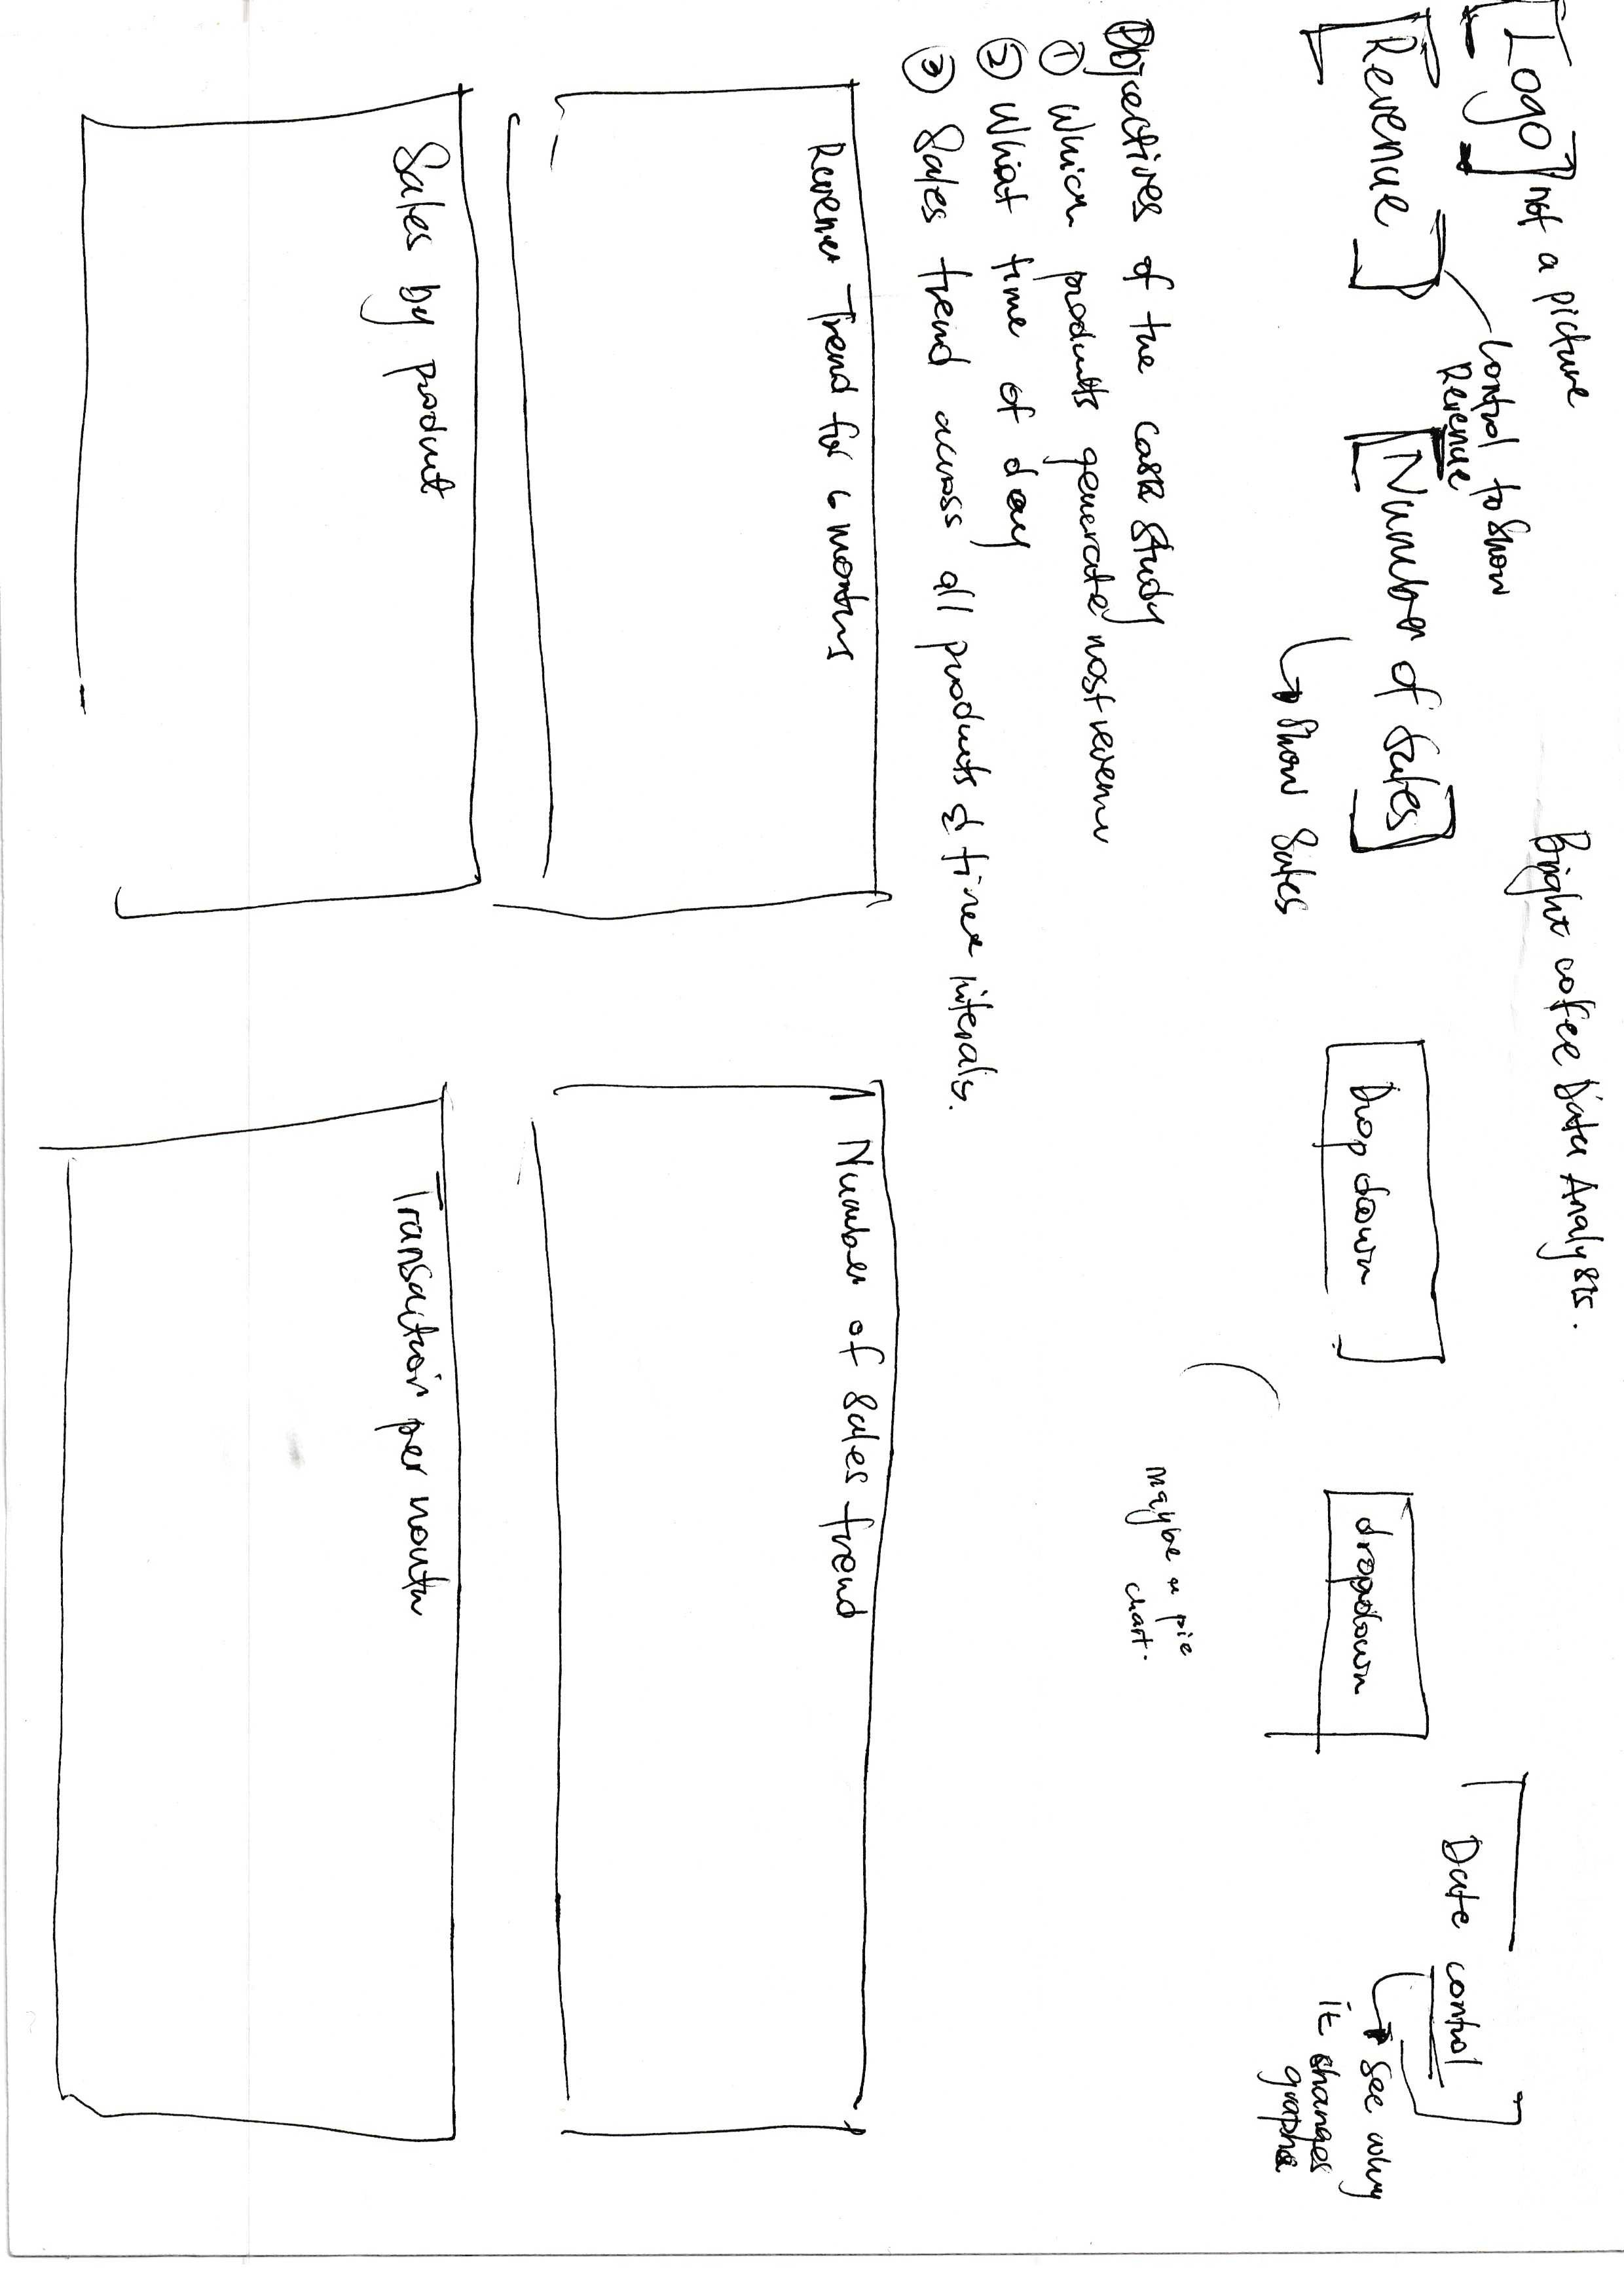 Logo not a picture
Bright coffee Data Analysis.
Revenue
Control to show
Revenue
Number of Sales
Show Sales
Drop down
dropdown
Date control
see why
it changes
graphs
maybe a pie
chart.
Objectives of the case study
① Which products generate most revenue
② What time of day
③ Sales trend across all products & time intervals.
Revenue Trend for 6 months
Number of Sales trend
Sales by product
Transaction per month